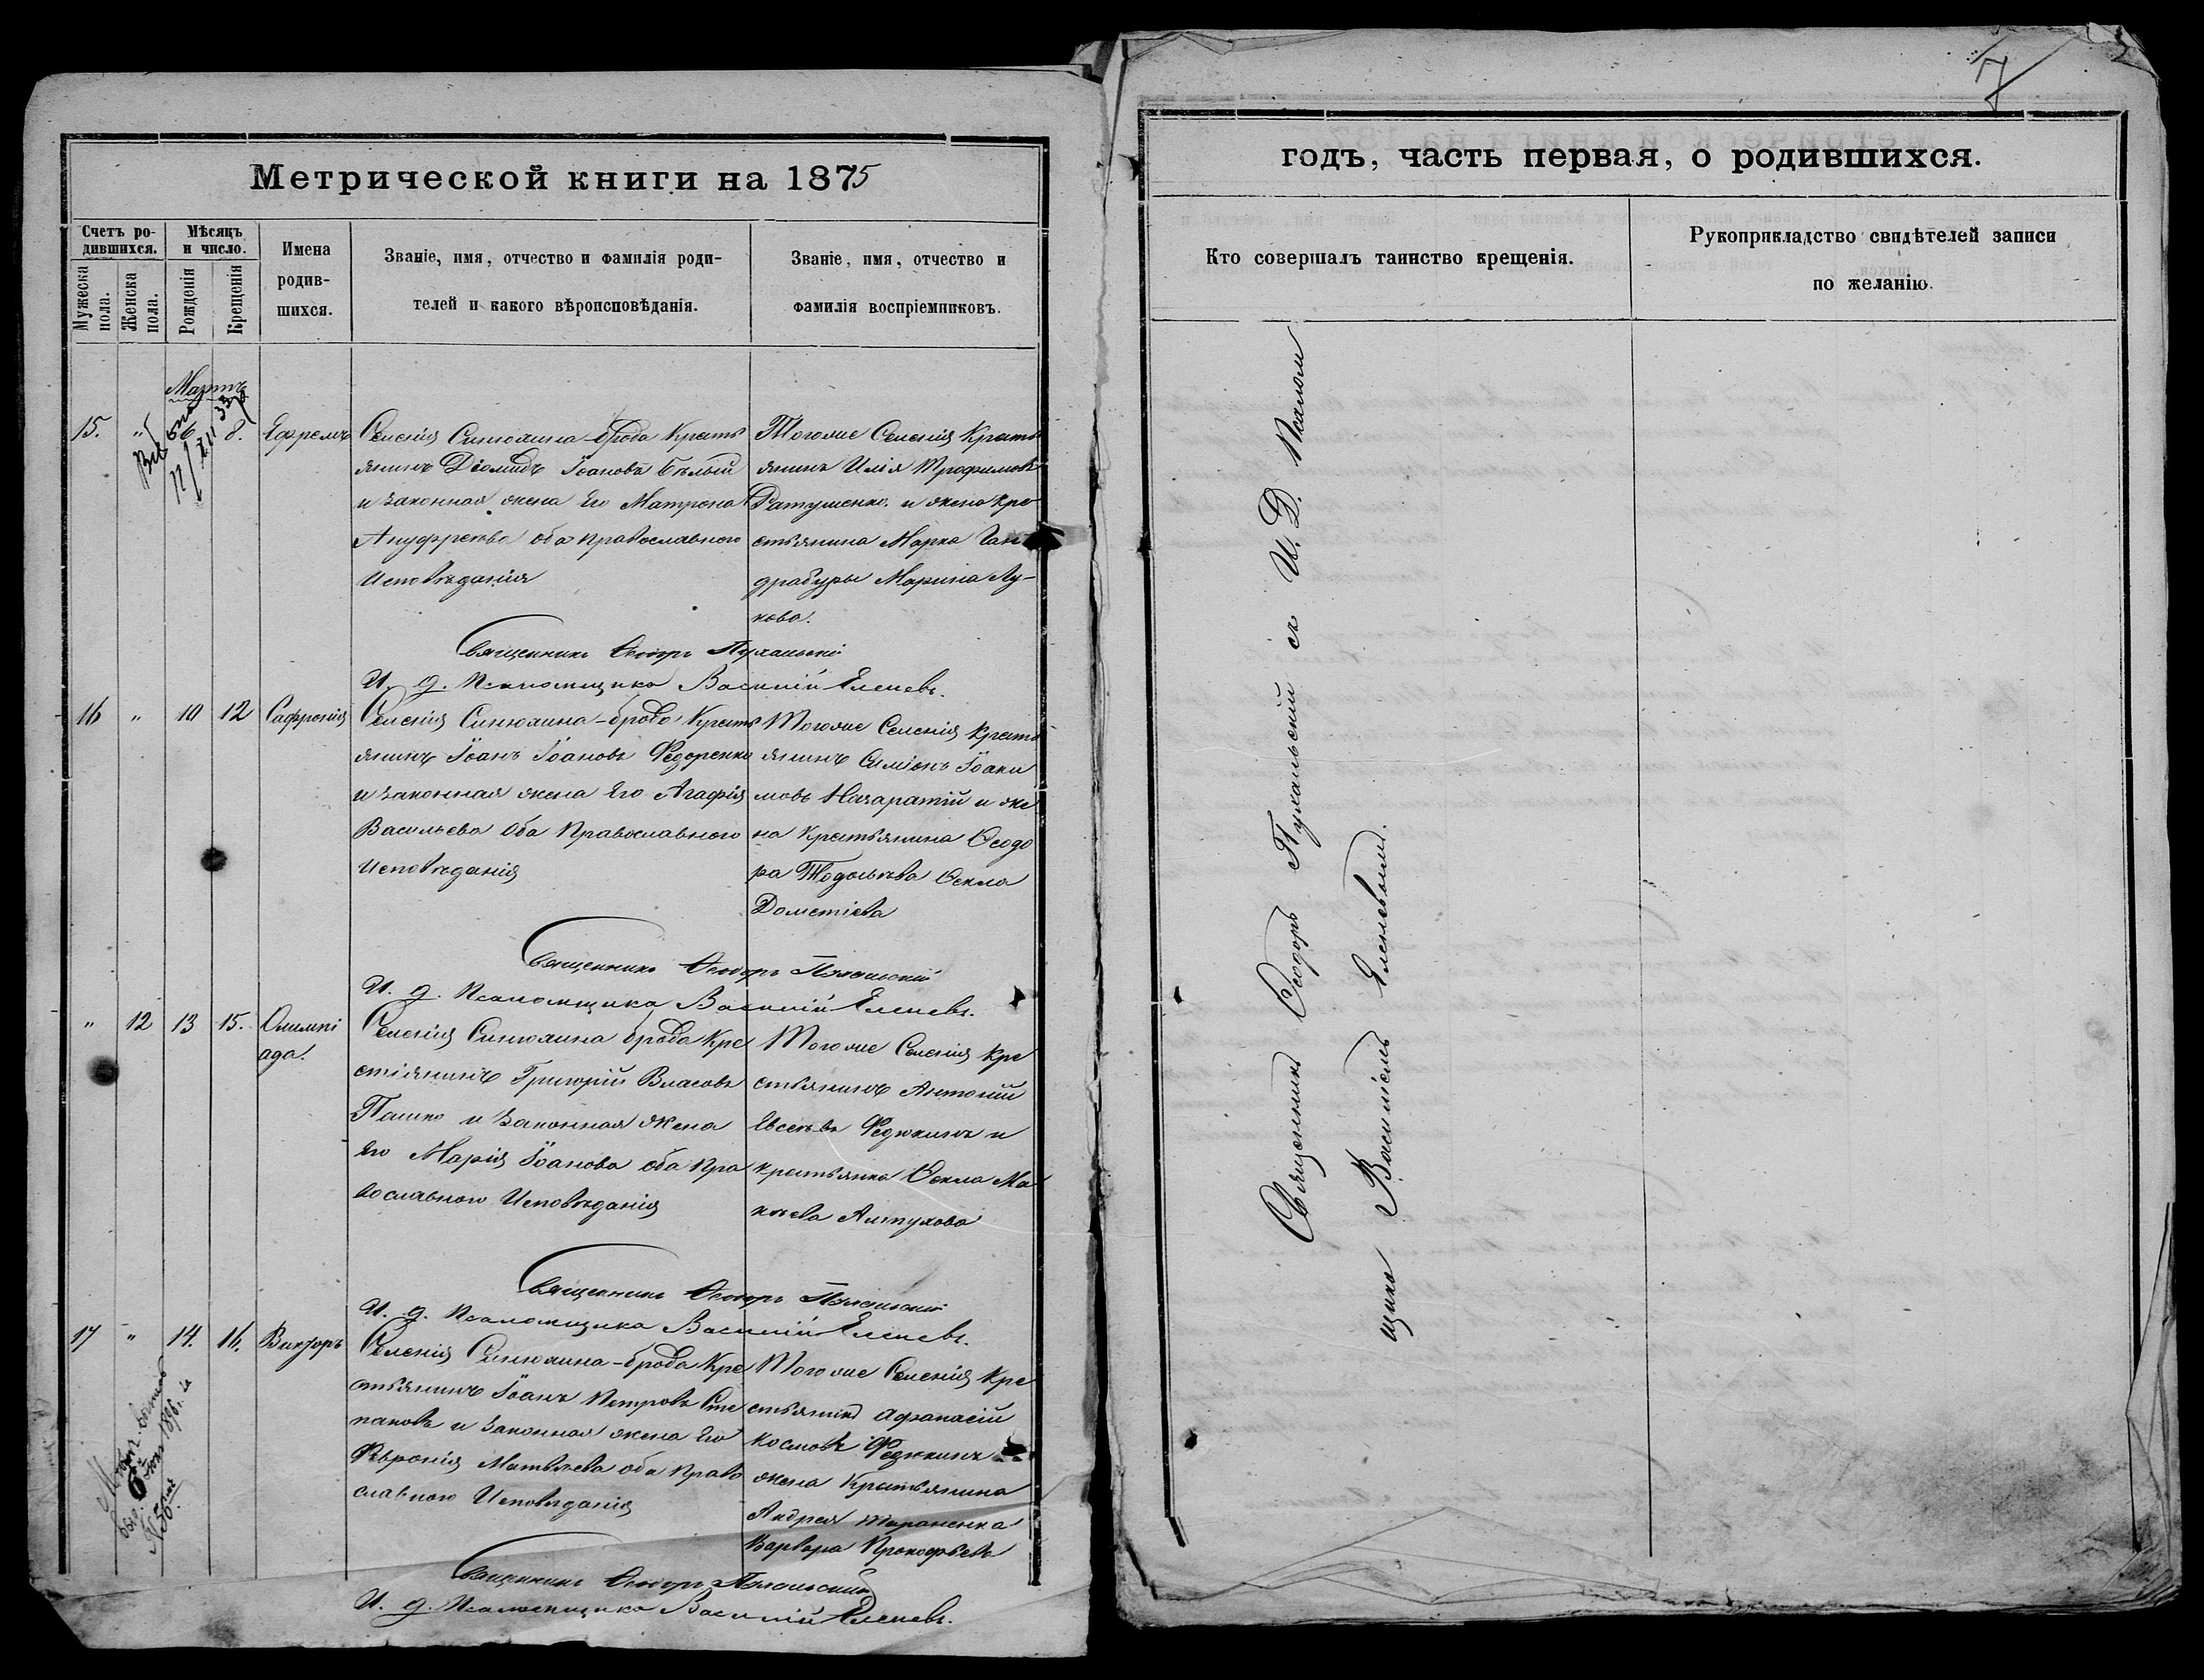 Метрической книги на 1875
Счетъ ро-
дившихся.
Мѣсяцъ
и число.
Мужеска
пола.
Женска
пола.
Рожденія
Крещенія
Имена
родив-
шихся.
Званіе, имя, отчество и фамилія роди-
телей и какого вѣроисповѣданія.
Званіе, имя, отчество и
фамилія воспріемниковъ.
Мартъ
15. " 6 8. Ефремъ
Селенія Синюхина-брода Кресть
янинъ Діомидъ Іоановъ Бѣлый
и законная жена Его Матрона
Ануфреева оба православного
Исповѣданія
Тогоже Селенія Кресть
янинъ Илія Трофимовъ
Ратушенко. и жена кре
стьянина Марка Ган
драбуры Марина Лу-
кова.
Священникъ Ѳеодоръ Пухальскій
И. д. Псаломщика Василій Еленевъ.
16 " 10 12 Сафроній
Селенія Синюхина-брода Кресть
янинъ Іоанъ Іоановъ Федоренко
и законная жена Его Агафія
Васильева Оба Православного
Исповѣданія
Тогоже Селенія Кресть
янинъ Симіонъ Іоаки
мовъ Назаратій и же
на крестьянина Ѳеодо
ра Тодорѣва Ѳекла
Дометіева
Священникъ Ѳеодоръ Пухальскій
И. д. Псаломщика Василій Еленевъ.
" 12 13 15. Олимпі
ада.
Селенія Синюхина брода Кре
стіянинъ Григорій Власовъ
Пашко и Законная Жена
Его Марія Іоанова оба Пра
вославного Исповѣданія
Тогоже Селенія Кре
стьянинъ Антоній
Евсеевъ Федюкинъ и
крестьянка Ѳекла Ма
кѣева Алтухова
Священникъ Ѳеодоръ Пухальскій
И. д. Псаломщика Василій Еленевъ.
17 " 14. 16. Викторъ
Селенія Синюхина-брода Кре
стьянинъ Іоанъ Петровъ Сте
пановъ и Законная жена Его
Февронія Матвѣева оба право
славного Исповѣданія
Тогоже Селенія Кре
стьянинъ Афанасій
Космовъ Федюкинъ и
жена Крестьянина
Андрея Тараненка
Варвара Прокофьева
Священникъ Ѳеодоръ Пухальскій
И. д. Псаломщика Василій Еленевъ.
7
годъ, часть первая, о родившихся.
Кто совершалъ таинство крещенія.
Рукоприкладство свидѣтелей записи
по желанію.
Священникъ Ѳеодоръ Пухальскій съ И. Д. Псалом
щика Василіемъ Еленевымъ.